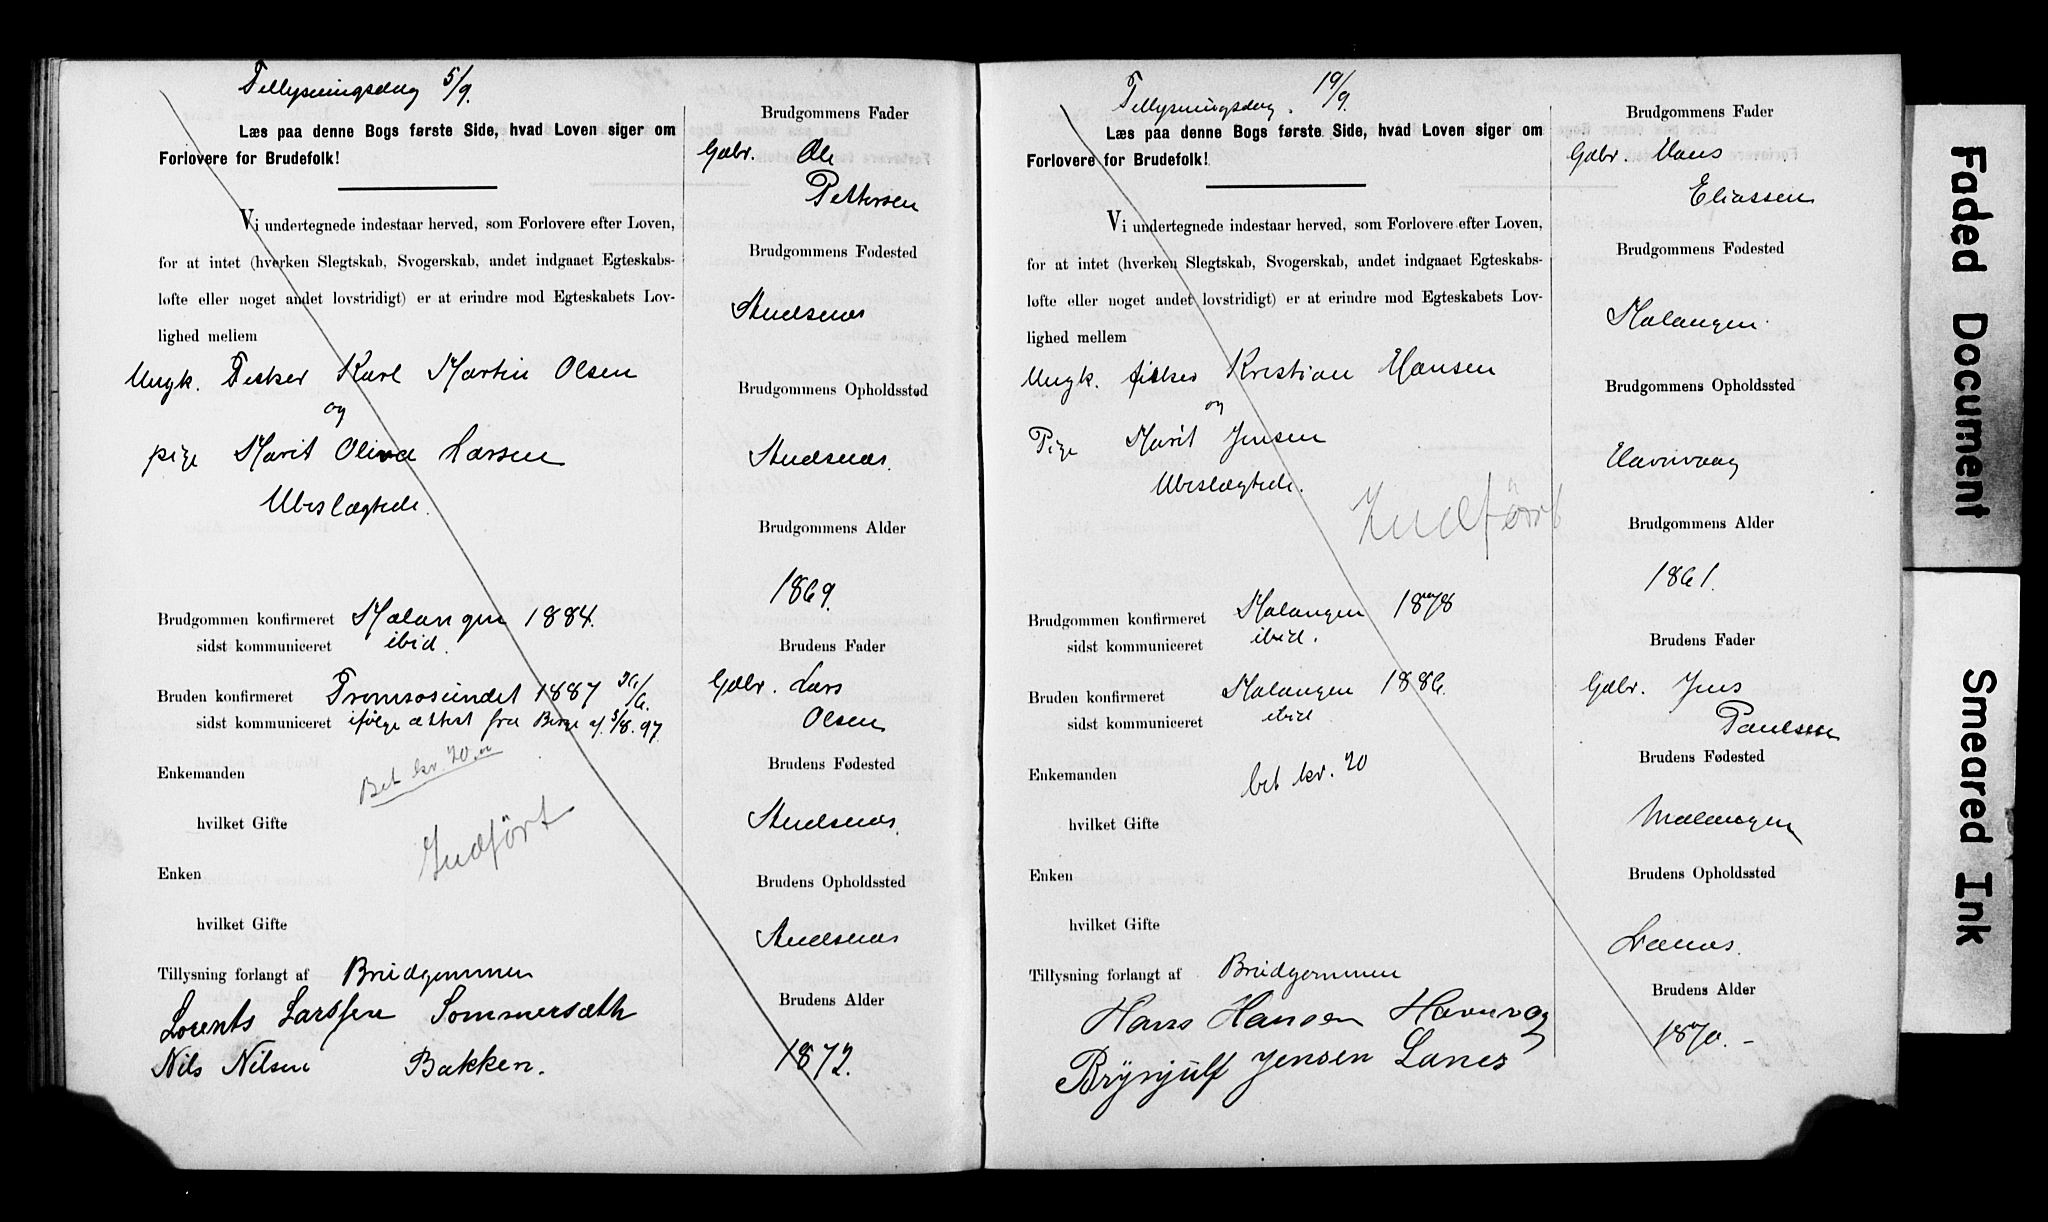 Tillysningsdag 5/9.
Læs paa denne Bogs første Side, hvad Loven siger om
Forlovere for Brudefolk!
Vi undertegnede indestaar herved, som Forlovere efter Loven,
for at intet (hverken Slegtskab, Svogerskab, andet indgaaet Egteskabs-
løfte eller noget andet lovstridigt) er at erindre mod Egteskabets Lov-
lighed mellem
Ungk. Fisker Karl Martin Olsen
og
pige Marit Oliva Larsen
Ubeslægtede.
Brudgommen konfirmeret Malangen 1884.
sidst kommuniceret ibid.
Bruden konfirmeret Tromsøsundet 1887
sidst kommuniceret ifølge attest fra
Bet kr. 20
Enkemanden
hvilket Gifte
Indført
Enken
hvilket Gifte
Tillysning forlangt af Brudgommen
Lorents Larssen Sommersæth
Nils Nilsen Bakken.
Brudgommens Fader
Gdbr. Ole
Pettersen
Brudgommens Fødested
Studsnæs
Brudgommens Opholdssted
Studsnæs.
Brudgommens Alder
1869.
Brudens Fader
Gdbr. Lars
Olsen
Brudens Fødested
Studsnæs.
Brudens Opholdssted
Studsnæs
Brudens Alder
1872.
Tillysningsdag. 19/9.
Læs paa denne Bogs første Side, hvad Loven siger om
Forlovere for Brudefolk!
Vi undertegnede indestaar herved, som Forlovere efter Loven,
for at intet (hverken Slegtskab, Svogerskab, andet indgaaet Egteskabs-
løfte eller noget andet lovstridigt) er at erindre mod Egteskabets Lov-
lighed mellem
Ungk. fisker Kristian Hansen
og
Pige Marit Jensen
Ubeslægtede.
Indført
Brudgommen konfirmeret Malangen 1878
sidst kommuniceret ibid.
Bruden konfirmeret Malangen 1886.
sidst kommuniceret ibid
Enkemanden
bet kr. 20
hvilket Gifte
Enken
hvilket Gifte
Tillysning forlangt af Brudgommen
Hans Hansen Havnvog
Brynjulf Jensen Lanes
Brudgommens Fader
Gdbr. Hans
Eliassen
Brudgommens Fødested
Malangen.
Brudgommens Opholdssted
Havnvaag
Brudgommens Alder
1861.
Brudens Fader
Gdbr. Jens
Paulsen
Brudens Fødested
Malangen
Brudens Opholdssted
Lanæs.
Brudens Alder
1870. -
Faded Document
Smeared Ink